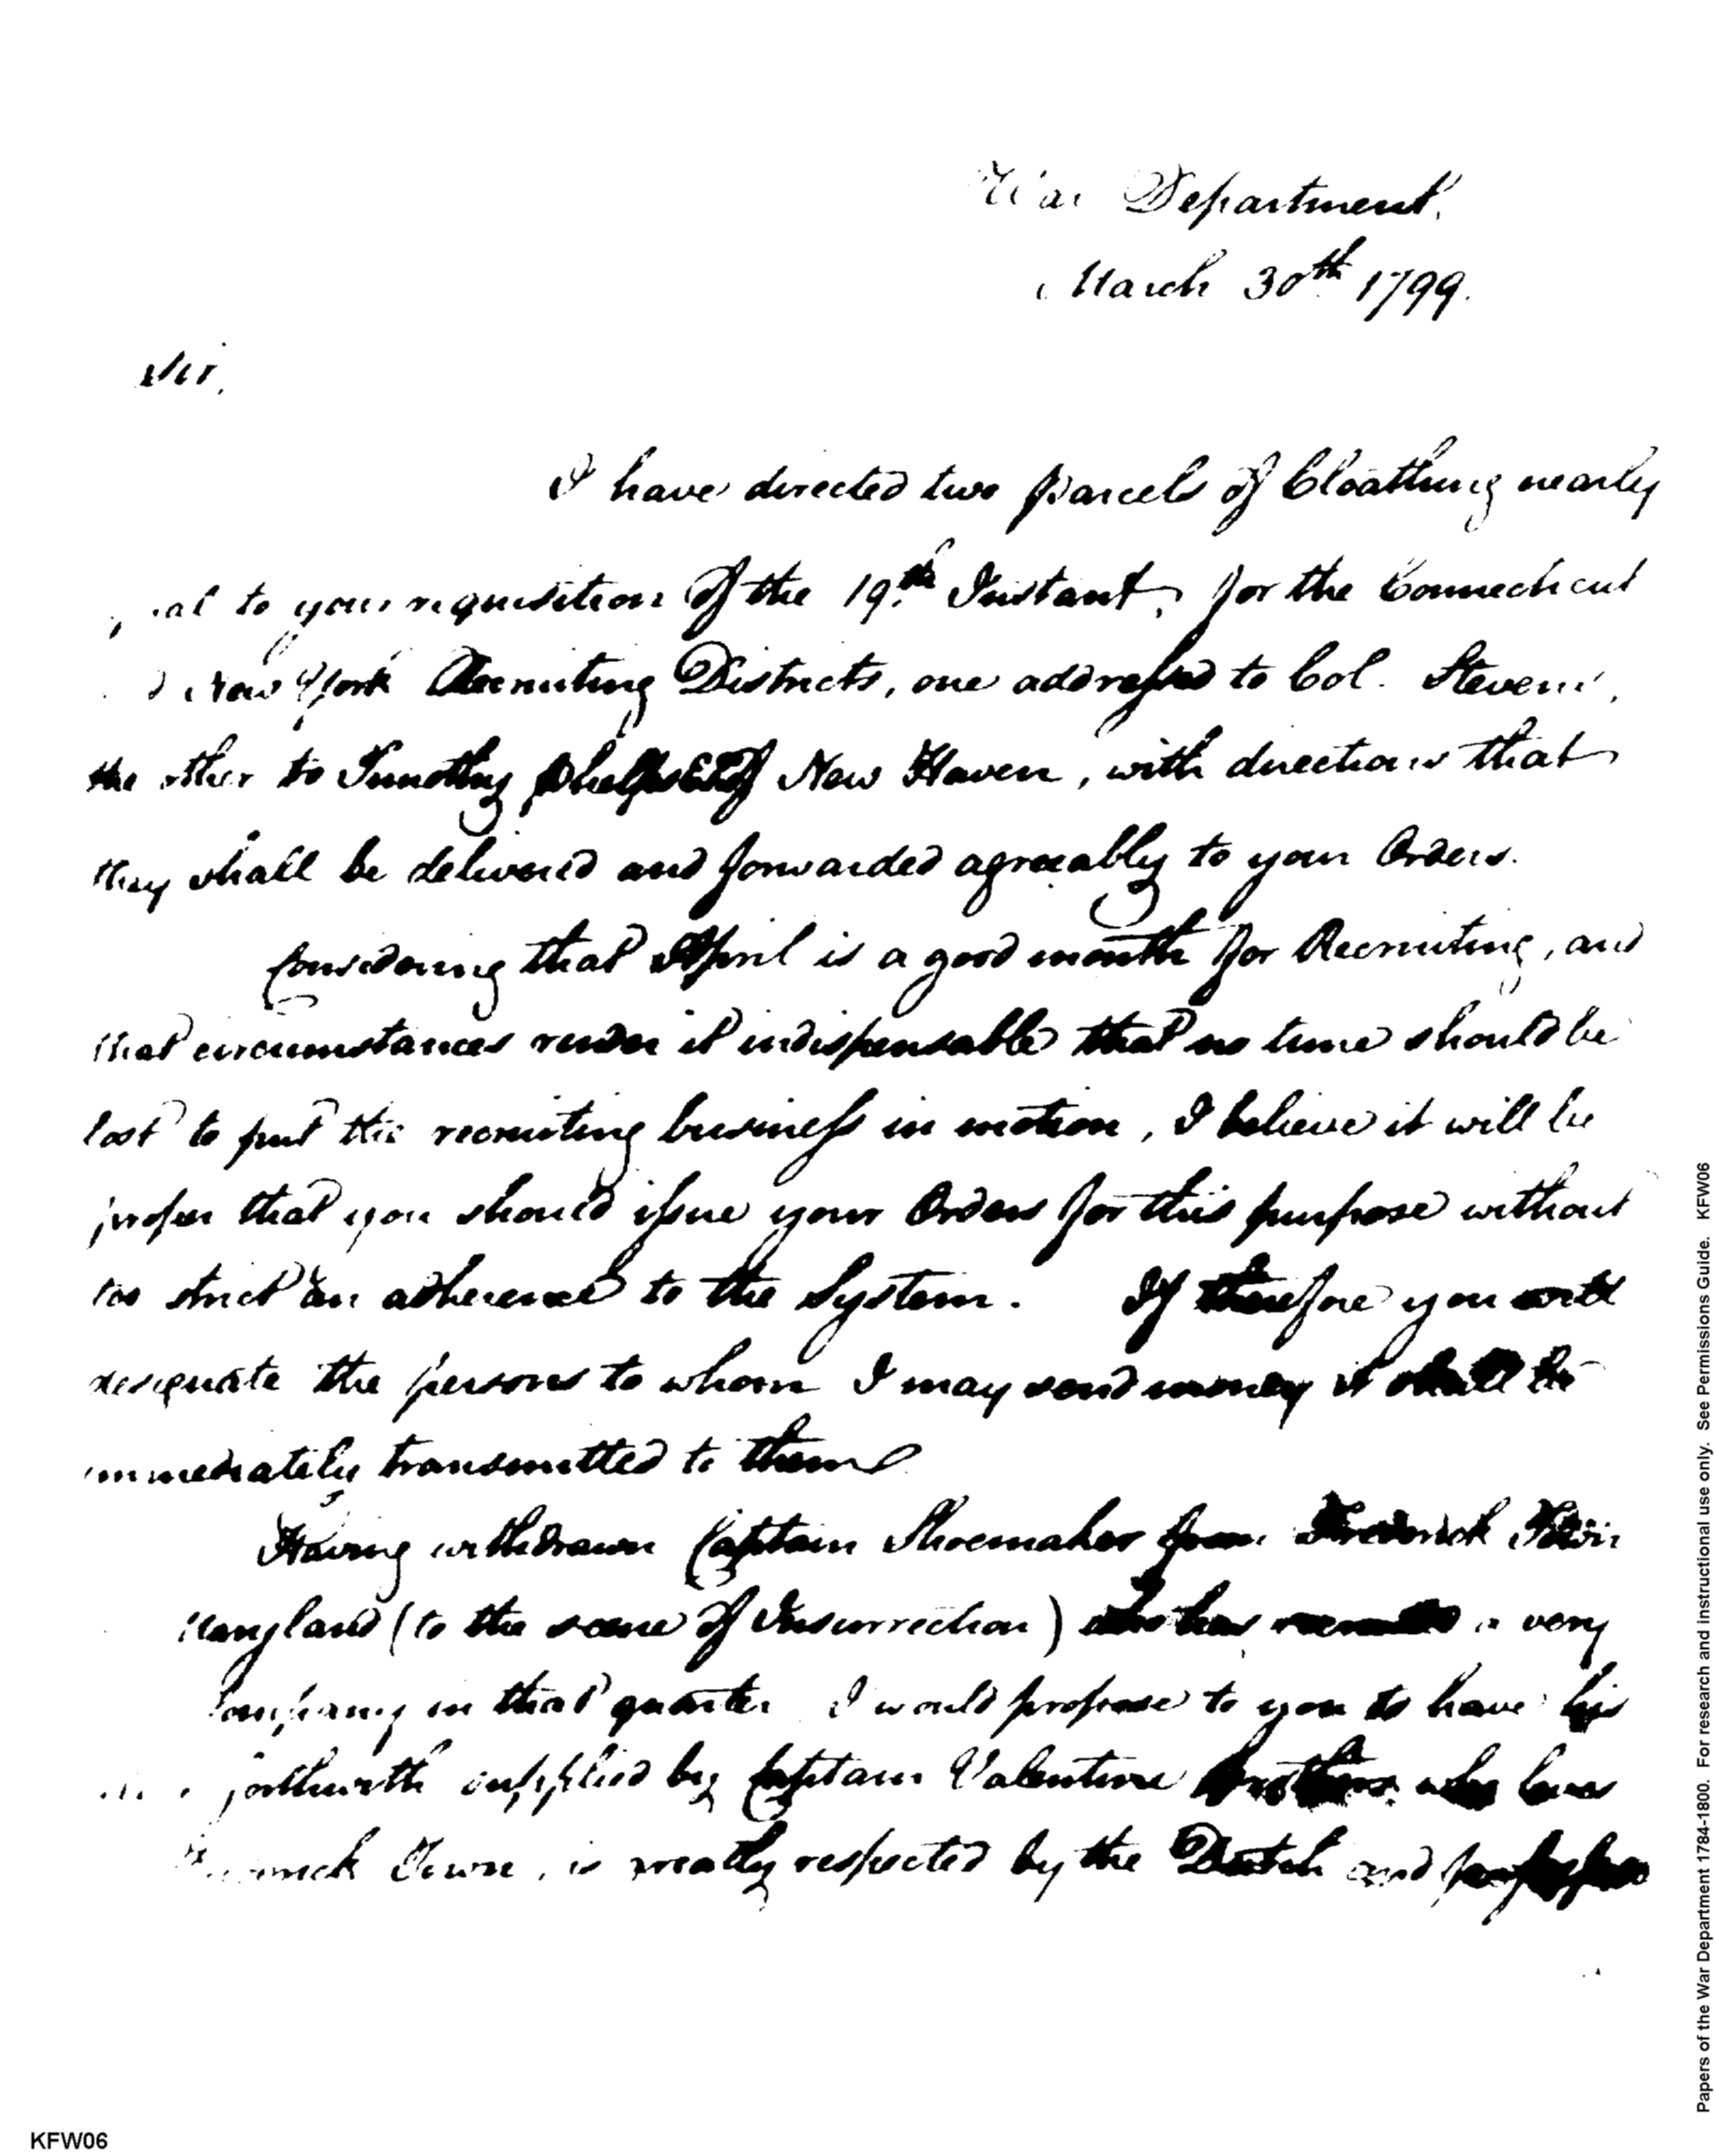 War Department.
March 30th 1799.
Sir.
I have directed two parcels of Cloathing nearly
to your requisition of the 19th Instant, for the Connecticut
New York Recruiting Districts, one addressed to Col. Stevens,
the other to Timothy Phelps Esq New Haven, with directions that
they shall be delivered and forwarded agreeably to your Orders.
Considering that April is a good month for Recruiting, and
that circumstances render it indispensable that no time should be
lost to put the recruiting business in motion, I believe it will be
proper that you should issue your Orders for this purpose without
too strict an adherence to the System. If therefore you will
designate the persons to whom I may send money it shall be
immediately transmitted to them
Having withdrawn Captain Shoemaker from Frederick Town
Maryland (to the scene of Insurrection) who has recruited a very
Company in that quarter I would propose to you to have his
forthwith supplied by Captain Valentine Brother who lives
Town, is greatly respected by the Dutch and
Papers of the War Department 1784-1800. For research and instructional use only. See Permissions Guide. KFW06
KFW06